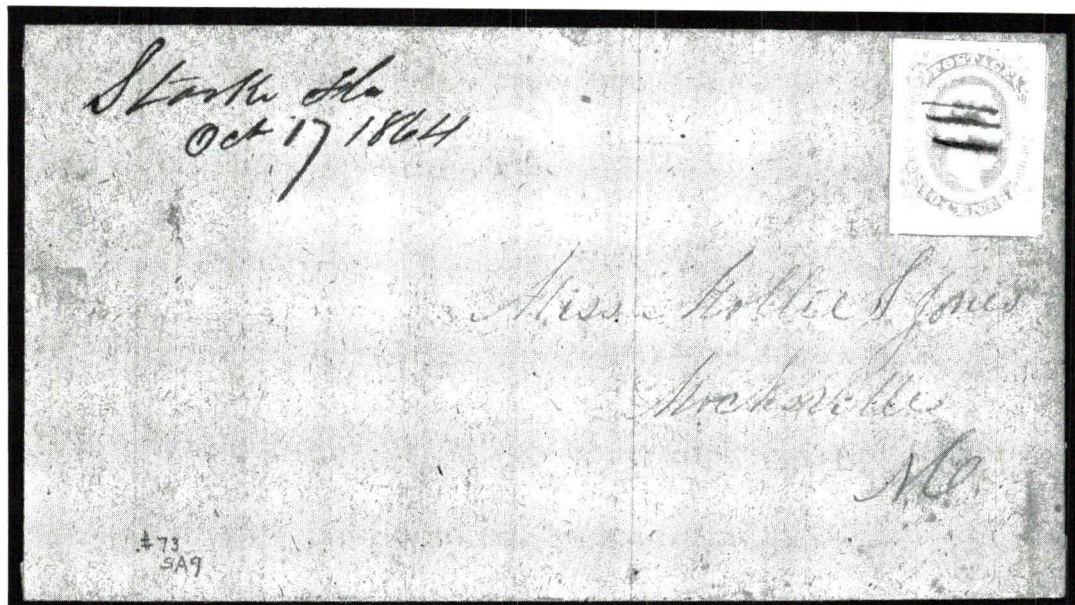 Starke Fla
Oct 17 1864
POSTAGE
TEN CENTS
Miss. Mollie S Jones
Mocksville
NC.
#73
SA9